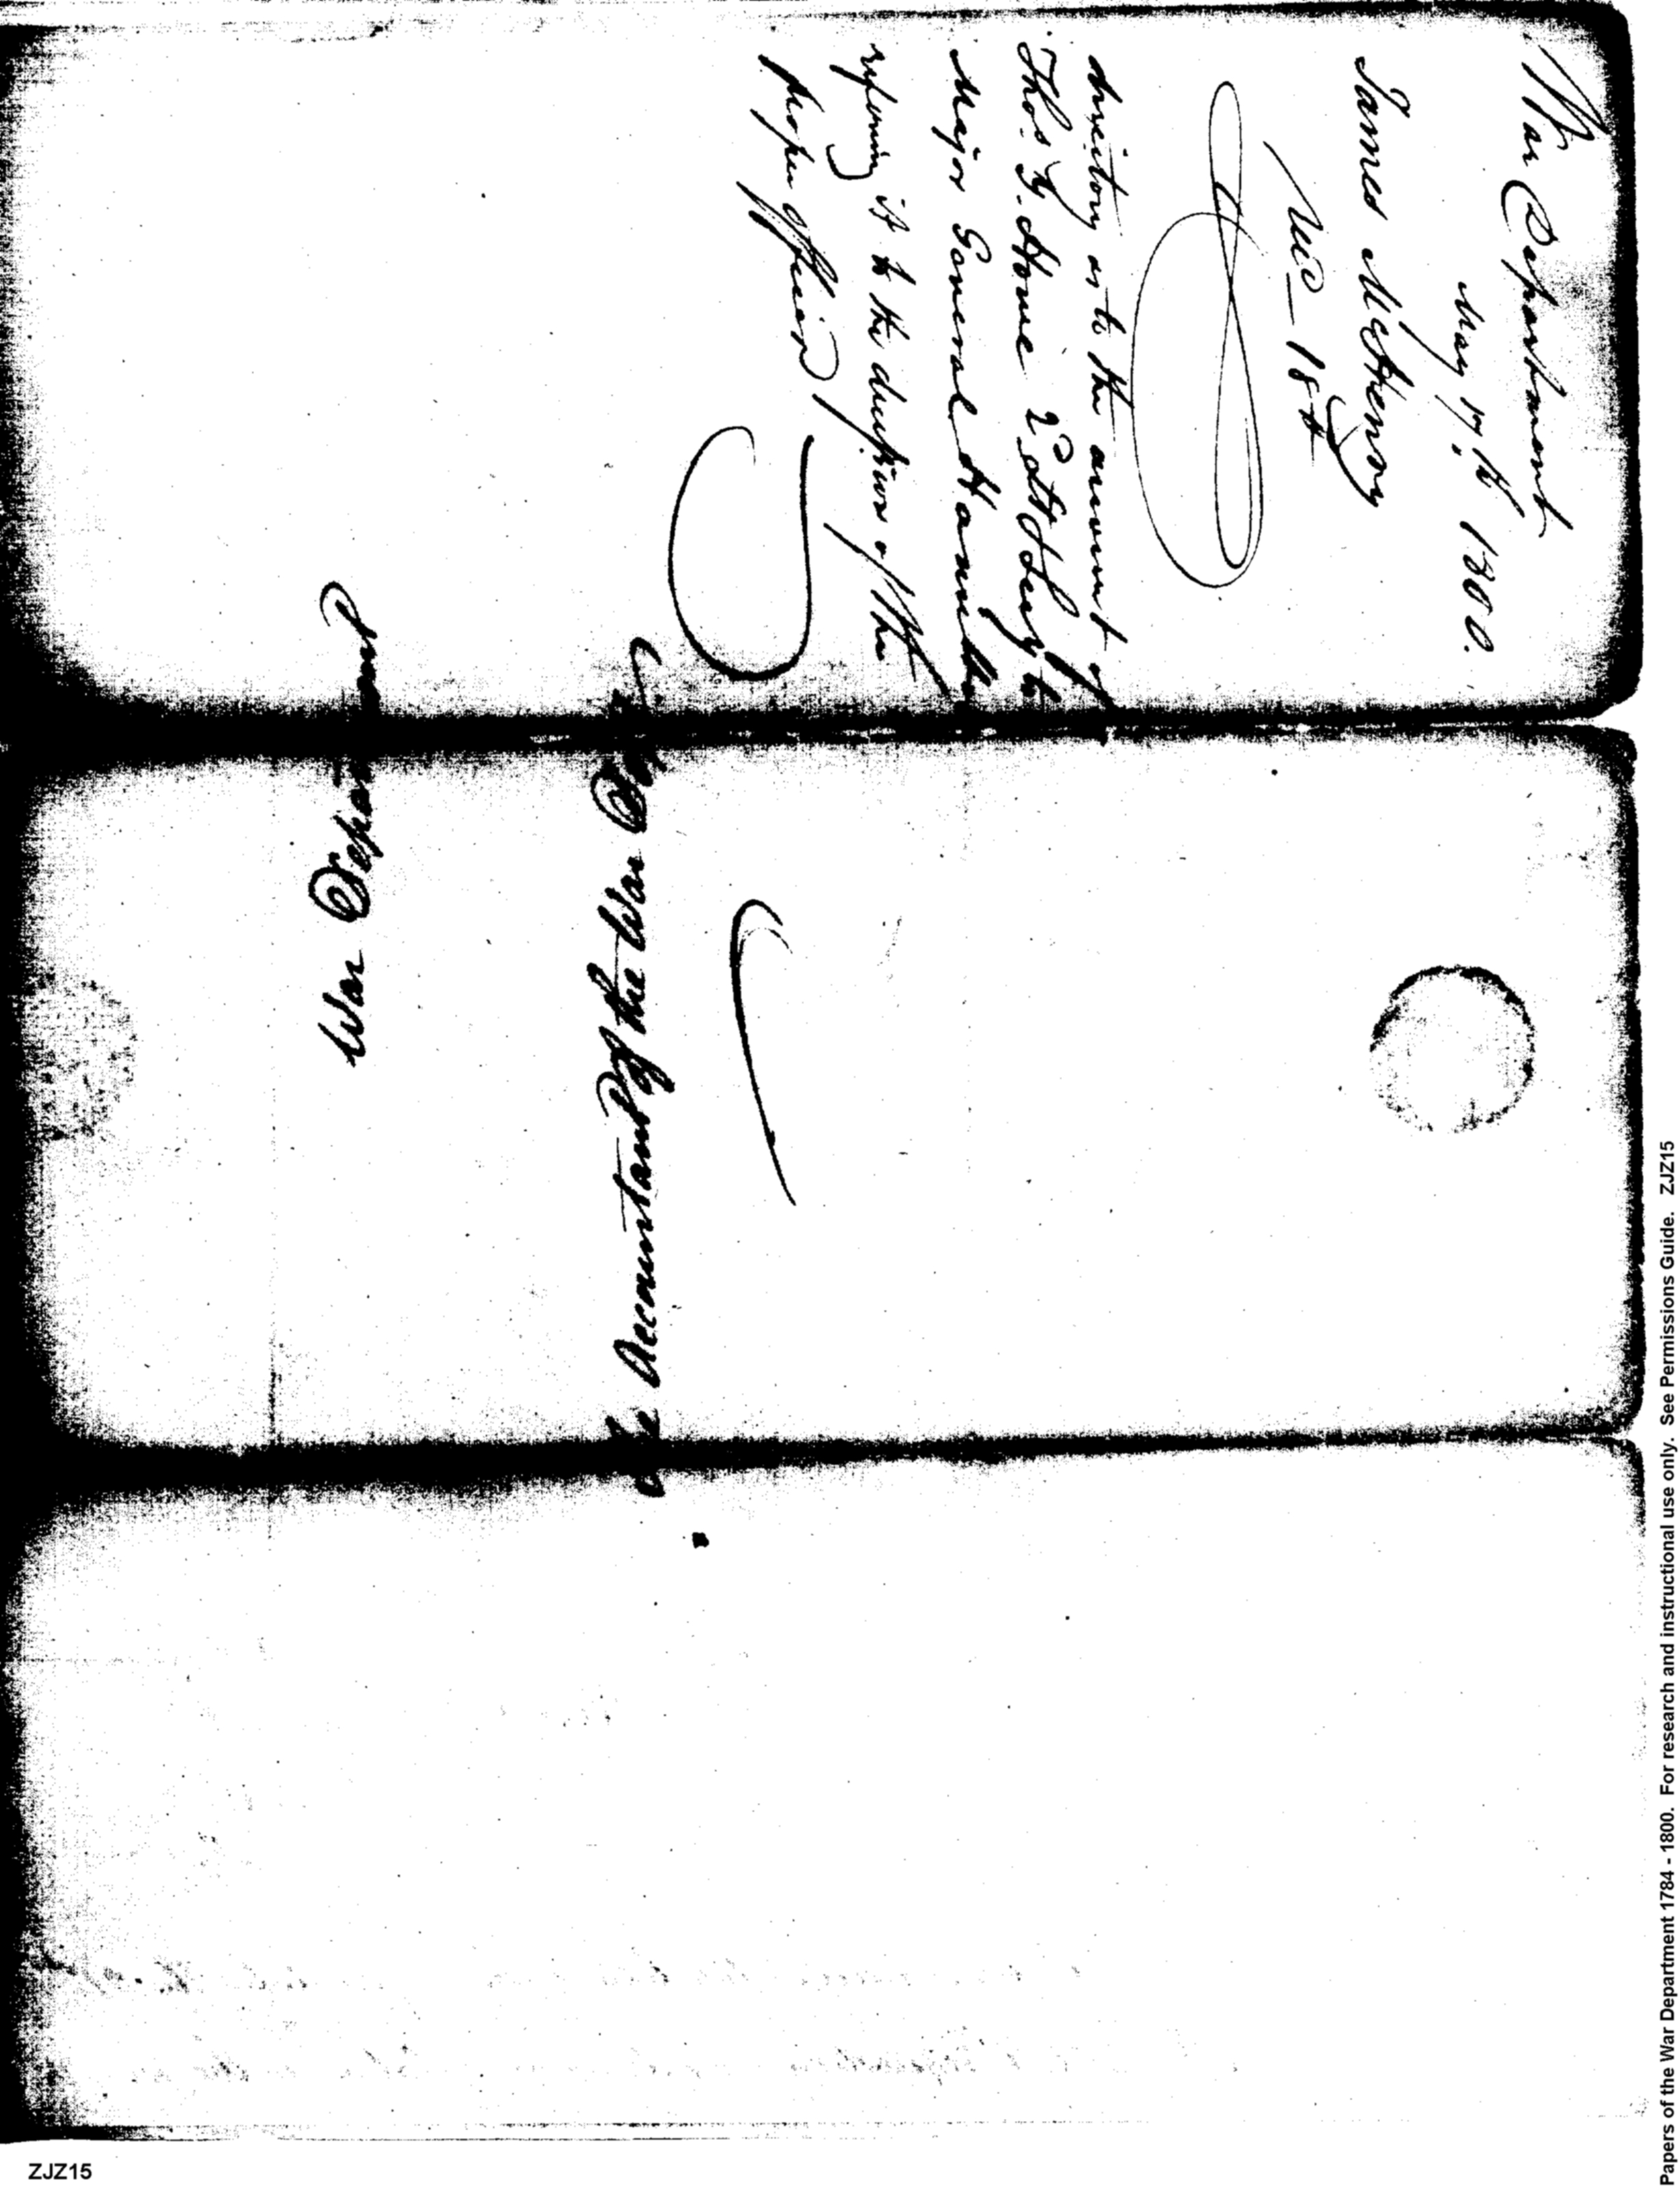 War Department
May 17th 1800.
James McHenry
Recd 18th
directory as to the account of
Thos Y. Howe 2d Lt & Secy to
Major General Hamilton
refering it to the decision of the
proper officers
War Department
The Accountant of the War Dept
Papers of the War Department 1784 - 1800. For research and instructional use only. See Permissions Guide. ZJZ15
ZJZ15